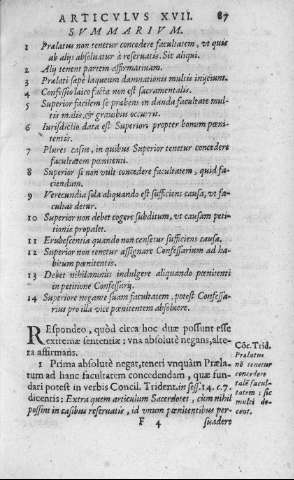 ARTICVLVS XVII. 87
SVMMARIVM.
1 Prælatus non tenetur concedere facultatem, vt quis
ab alijs absoluatur à reseruatis. Sic aliqui.
2 Alij tenent partem affirmatiuam.
3 Prælati sæpè laqueum damnationis multis inijciunt.
4 Confessio laico facta non est sacramentalis.
5 Superior facilem se præbens in danda facultate mul-
tis malis, & grauibus occurrit.
6 Iurisdictio data est Superiori propter bonum pœni-
tentis.
7 Plures casus, in quibus Superior tenetur concedere
facultatem pœnitenti.
8 Superior si non vult concedere facultatem, quid fa-
ciendum.
9 Verecundia sola aliquando est sufficiens causa, vt fa-
cultas detur.
10 Superior non debet cogere subditum, vt causam peti-
tionis propalet.
11 Erubescentia quando non censetur sufficiens causa.
12 Superior non tenetur assignare Confessarium ad ha-
bitum pœnitentis.
13 Debet nihilominus indulgere aliquando pœnitenti
in petitione Confessarij.
14 Superiore negante suam facultatem, potest Confessa-
rius pro illa vice pœnitentem absoluere.
REspondeo, quòd circa hoc duæ possunt esse
extremæ sententiæ: vna absolutè negans, alte-
ra affirmans.
1 Prima absolutè negat, teneri vnquàm Præla-
tum ad hanc facultatem concedendam, quæ fun-
dari potest in verbis Concil. Trident. in sess. 14. c. 7.
dicentis: Extra quem articulum Sacerdotes, cùm nihil
possint in casibus reseruatis, id vnum pœnitentibus per-
F 4 suadere
Cōc. Trid.
Prælatus
nō tenetur
concedere
talē facul-
tatem: sic
multi do-
cent.